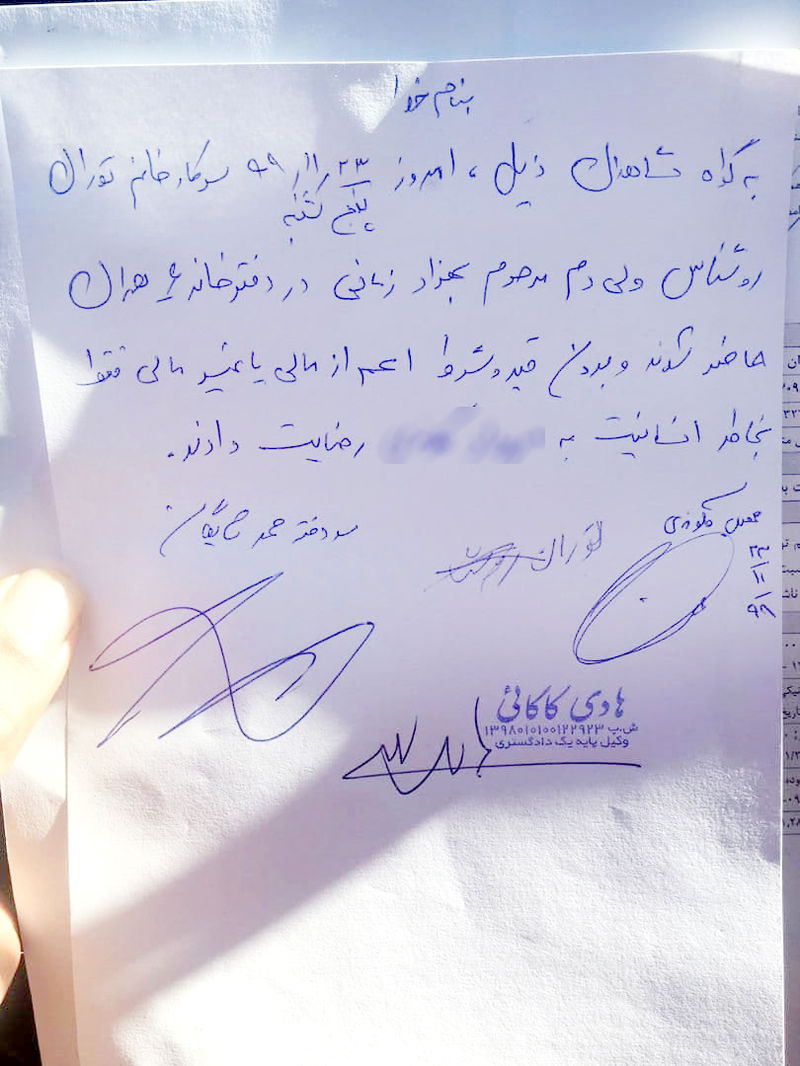 بنام خدا
به گواه شاهدان ذیل ، امروز ۹۹/۱۱/۲۳ سرکار خانم توران
پنج شنبه
روشناس ولی دم مرحوم بهزاد زمانی در دفترخانه ۶ همدان
حاضر شدند و بدون قید و شرط اعم از مالی یا غیر مالی فقط
بخاطر انسانیت به رضایت دادند.
سر دفتر محمد
توران
۲۳
۱۱
۹۹
هادی کاکائی
ش.پ ۱۳۹۸۰۱۰۱۰۰۱۲۲۹۲۳
وکیل پایه یک دادگستری